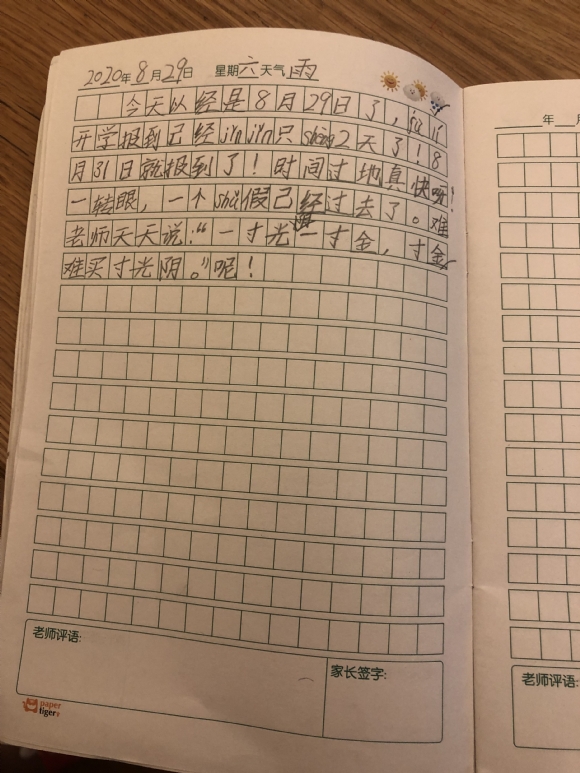 2020年8月29日 星期六天气雨
今天以经是8月29日了,
开学报到己经jǐn jǐn只shèng2天了!8
月31日就报到了!时间过地真快呀!
一转眼,一个shǔ假己经过去了。难
老师天天说:“一寸光阴一寸金,寸金
难买寸光阴。”呢!
老师评语:
家长签字:
paper
tiger
年 月
老师评语: